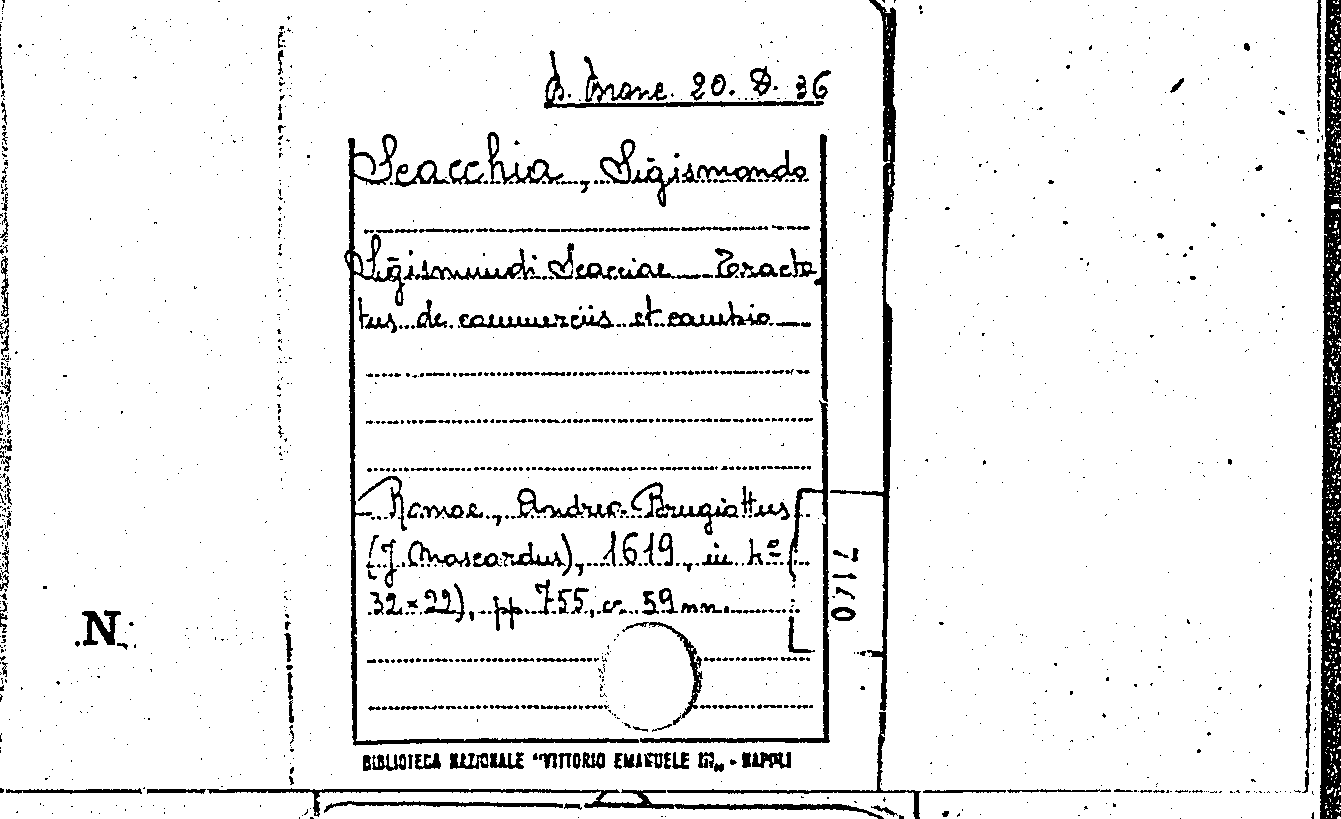 B. Branc. 20. D. 36
Scacchia, Sigismondo
Sigismundi Scacciae Tracta
tus de commerciis et cambio
Romae, Andrea Brugiottus
(J. Mascardus), 1619, in 4º (
32×22), pp. 755, 59 nn.
7170
N
BIBLIOTECA NAZIONALE "VITTORIO EMANUELE III„ - NAPOLI